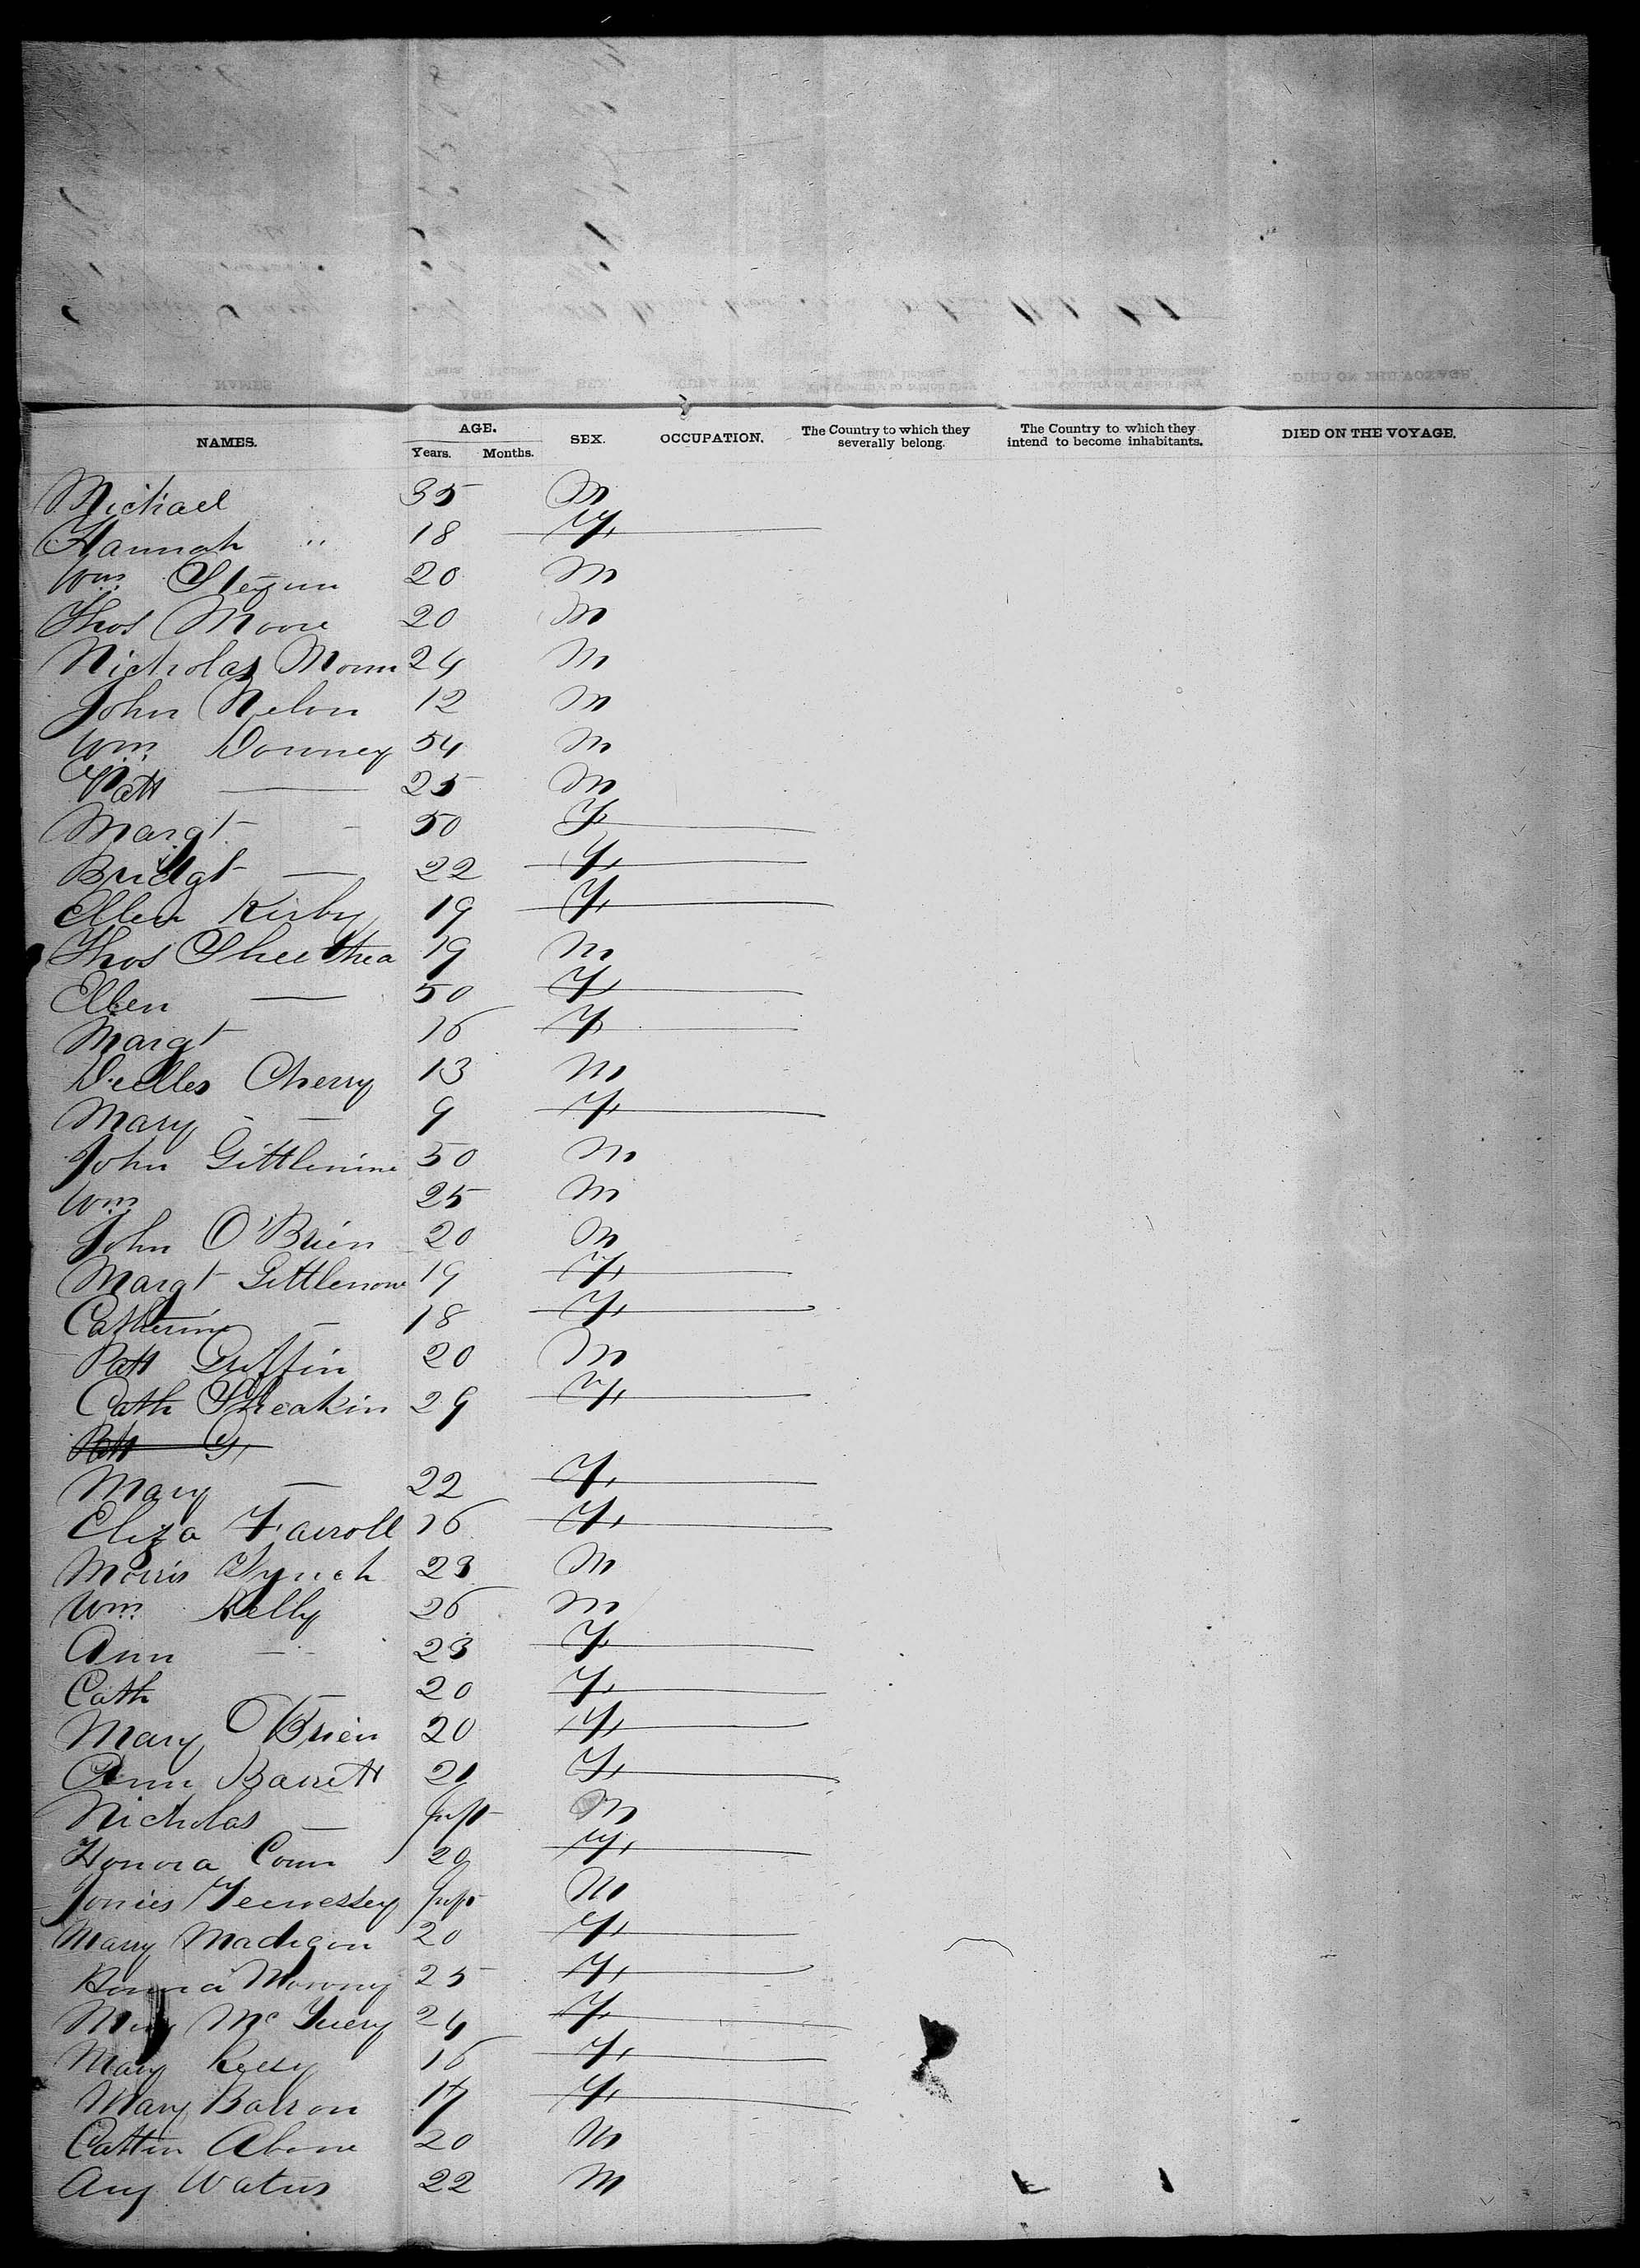 NAMES. AGE. SEX. OCCUPATION. The Country to which they severally belong. The Country to which they intend to become inhabitants. DIED ON THE VOYAGE.
Years. Months.
Michael 35 M
Hannah " 18 F
Wm 20 M
Thos Moore 20 M
Nicholas 24 M
John Nelon 12 M
Wm Downey 54 M
Patt — 25 M
Margt - - 50 F
Bridgt — 22 F
Ellen Kirby 19 F
Thos 19 M
Ellen — 50 F
Margt 16 F
Cherry 13 M
Mary - — 9 F
John 50 M
Wm 25 M
John O'Brien 20 M
Margt 19 F
Catherine - 18 F
Patt Griffin 20 M
Cath Sheakin 29 F
Patt G
Mary — 22 F
Eliza Farroll 16 F
Morris Lynch 23 M
Wm Kelly 26 M
Ann — 23 F
Cath — 20 F
Mary O'Brien 20 F
Ann Barrett 21 F
Nicholas — Inft M
Honora Conn 20 F
Inft M
Mary Madigan 20 F
Morony 25 F
Mc 24 F
Mary 16 F
Mary Barron 17 F
20 M
Waters 22 M